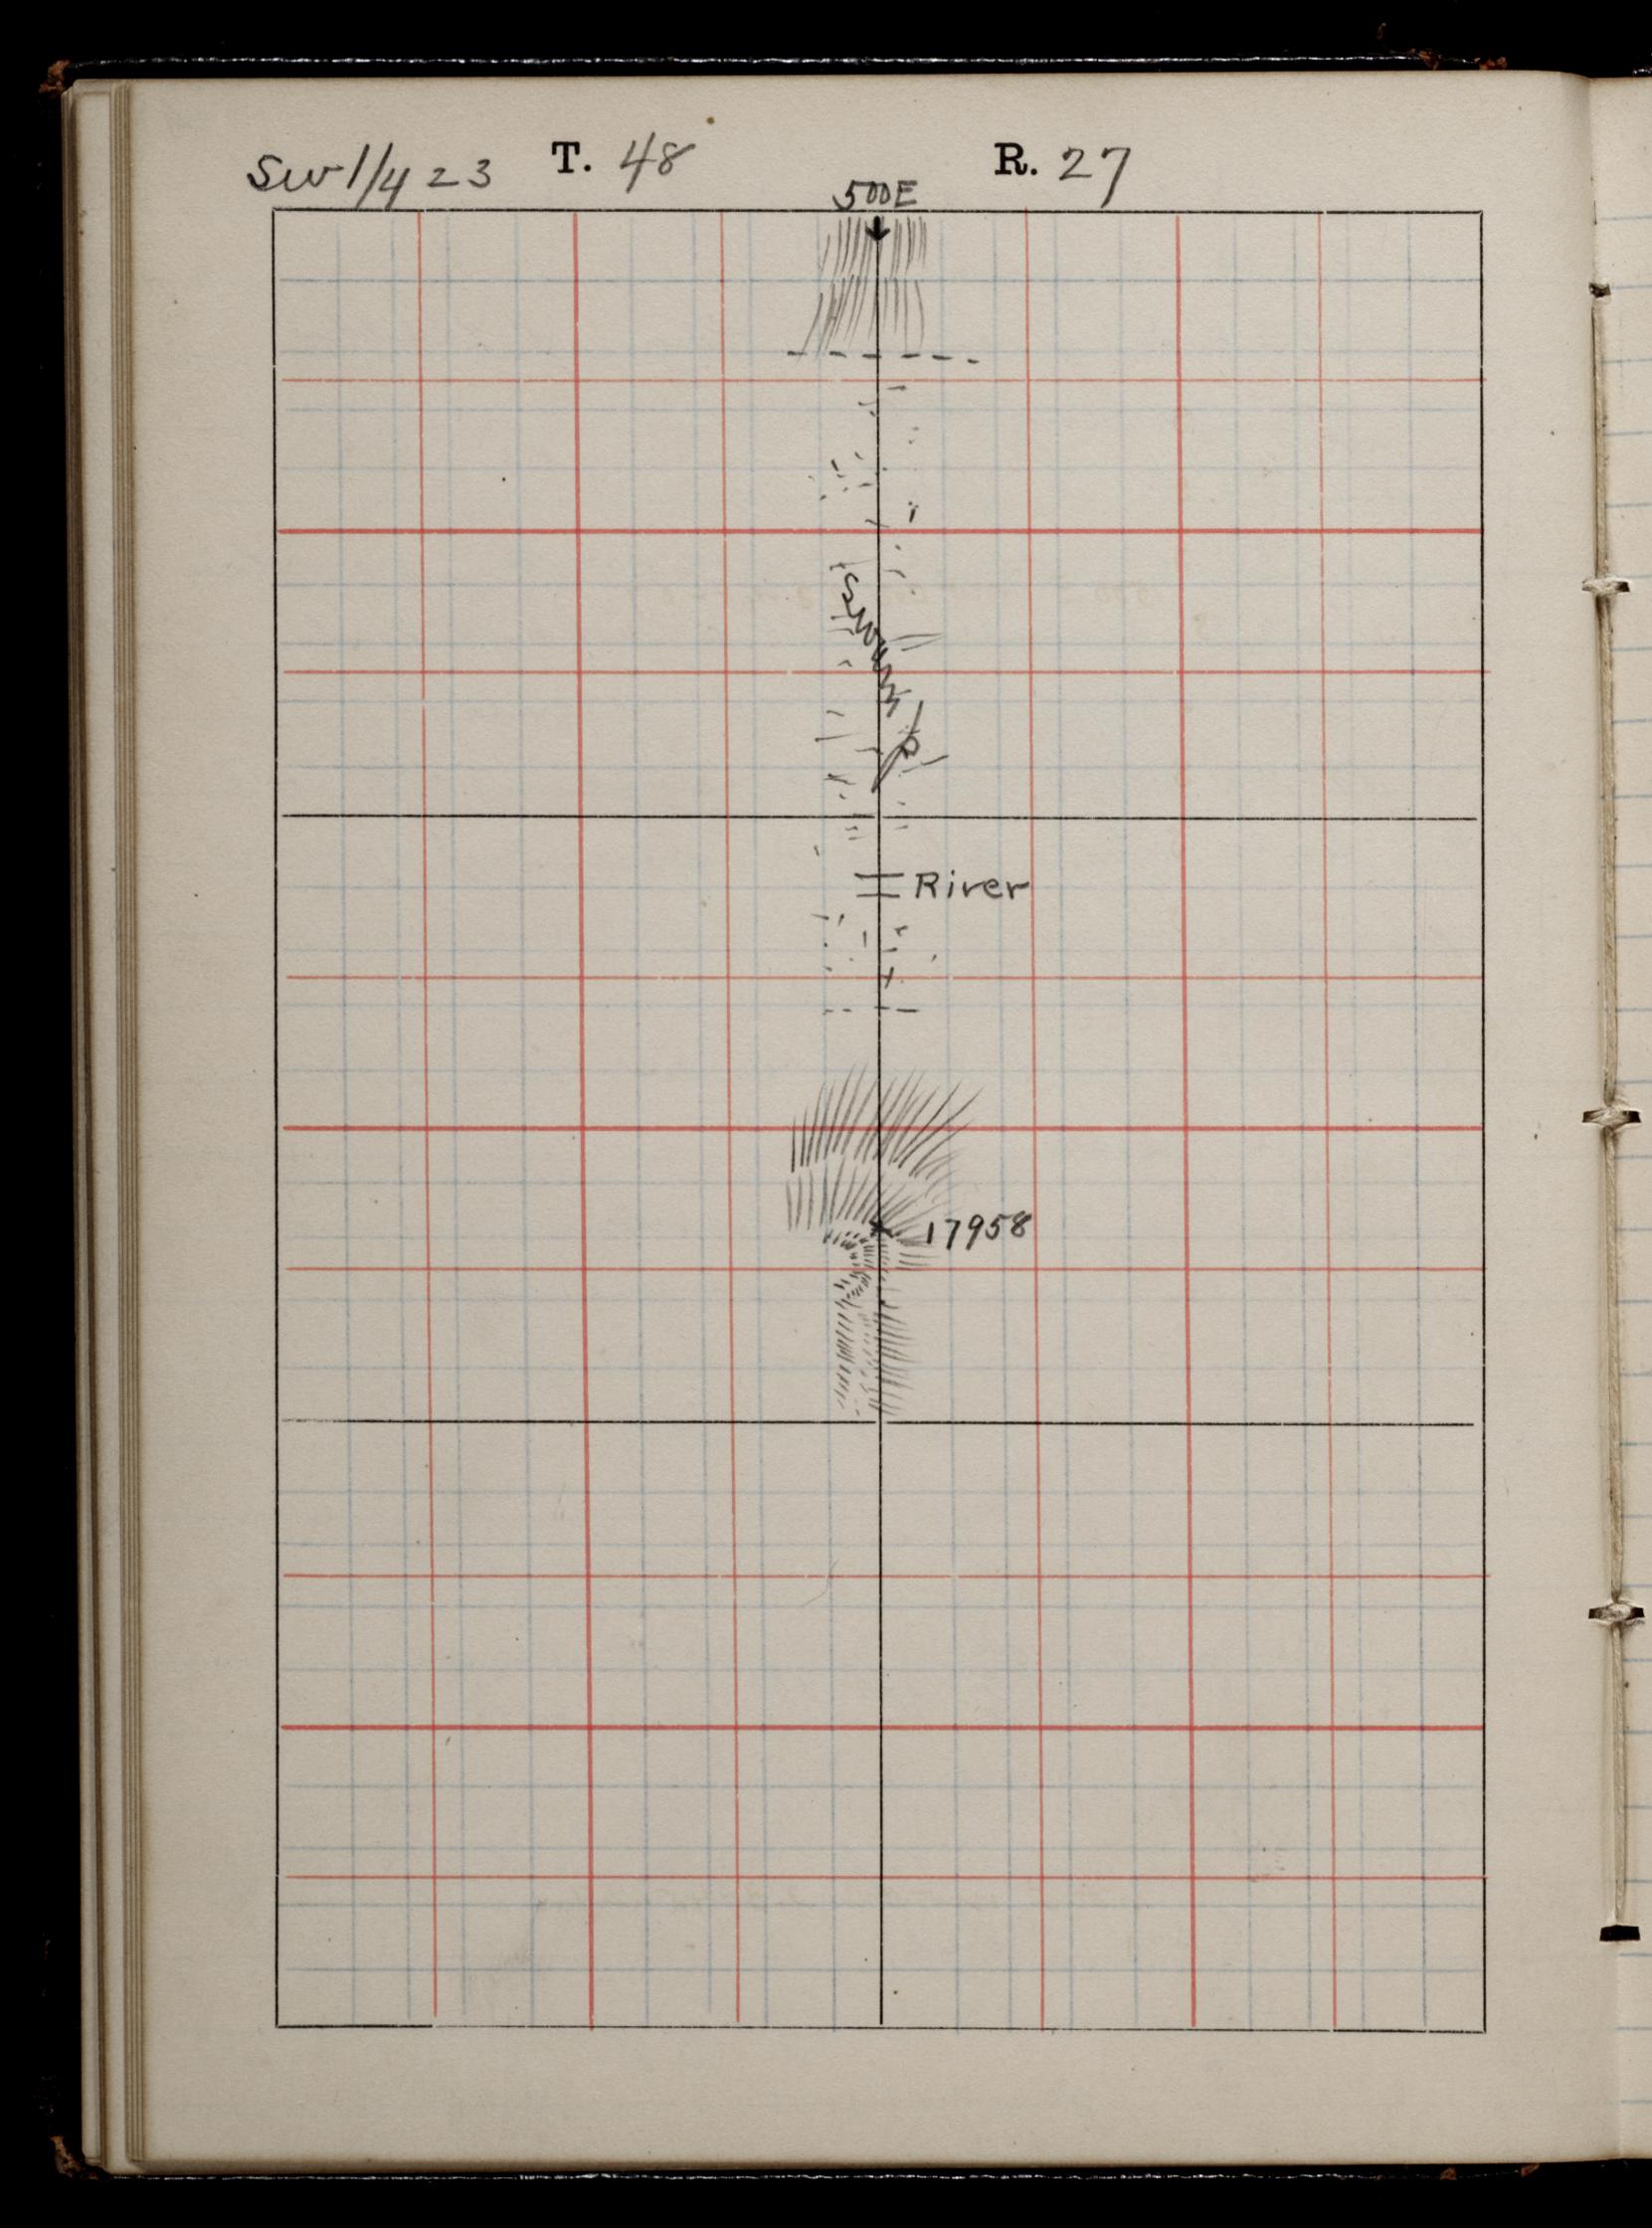 SW 1/4 23 T. 48 R. 27
500E
Swamp
River
17958